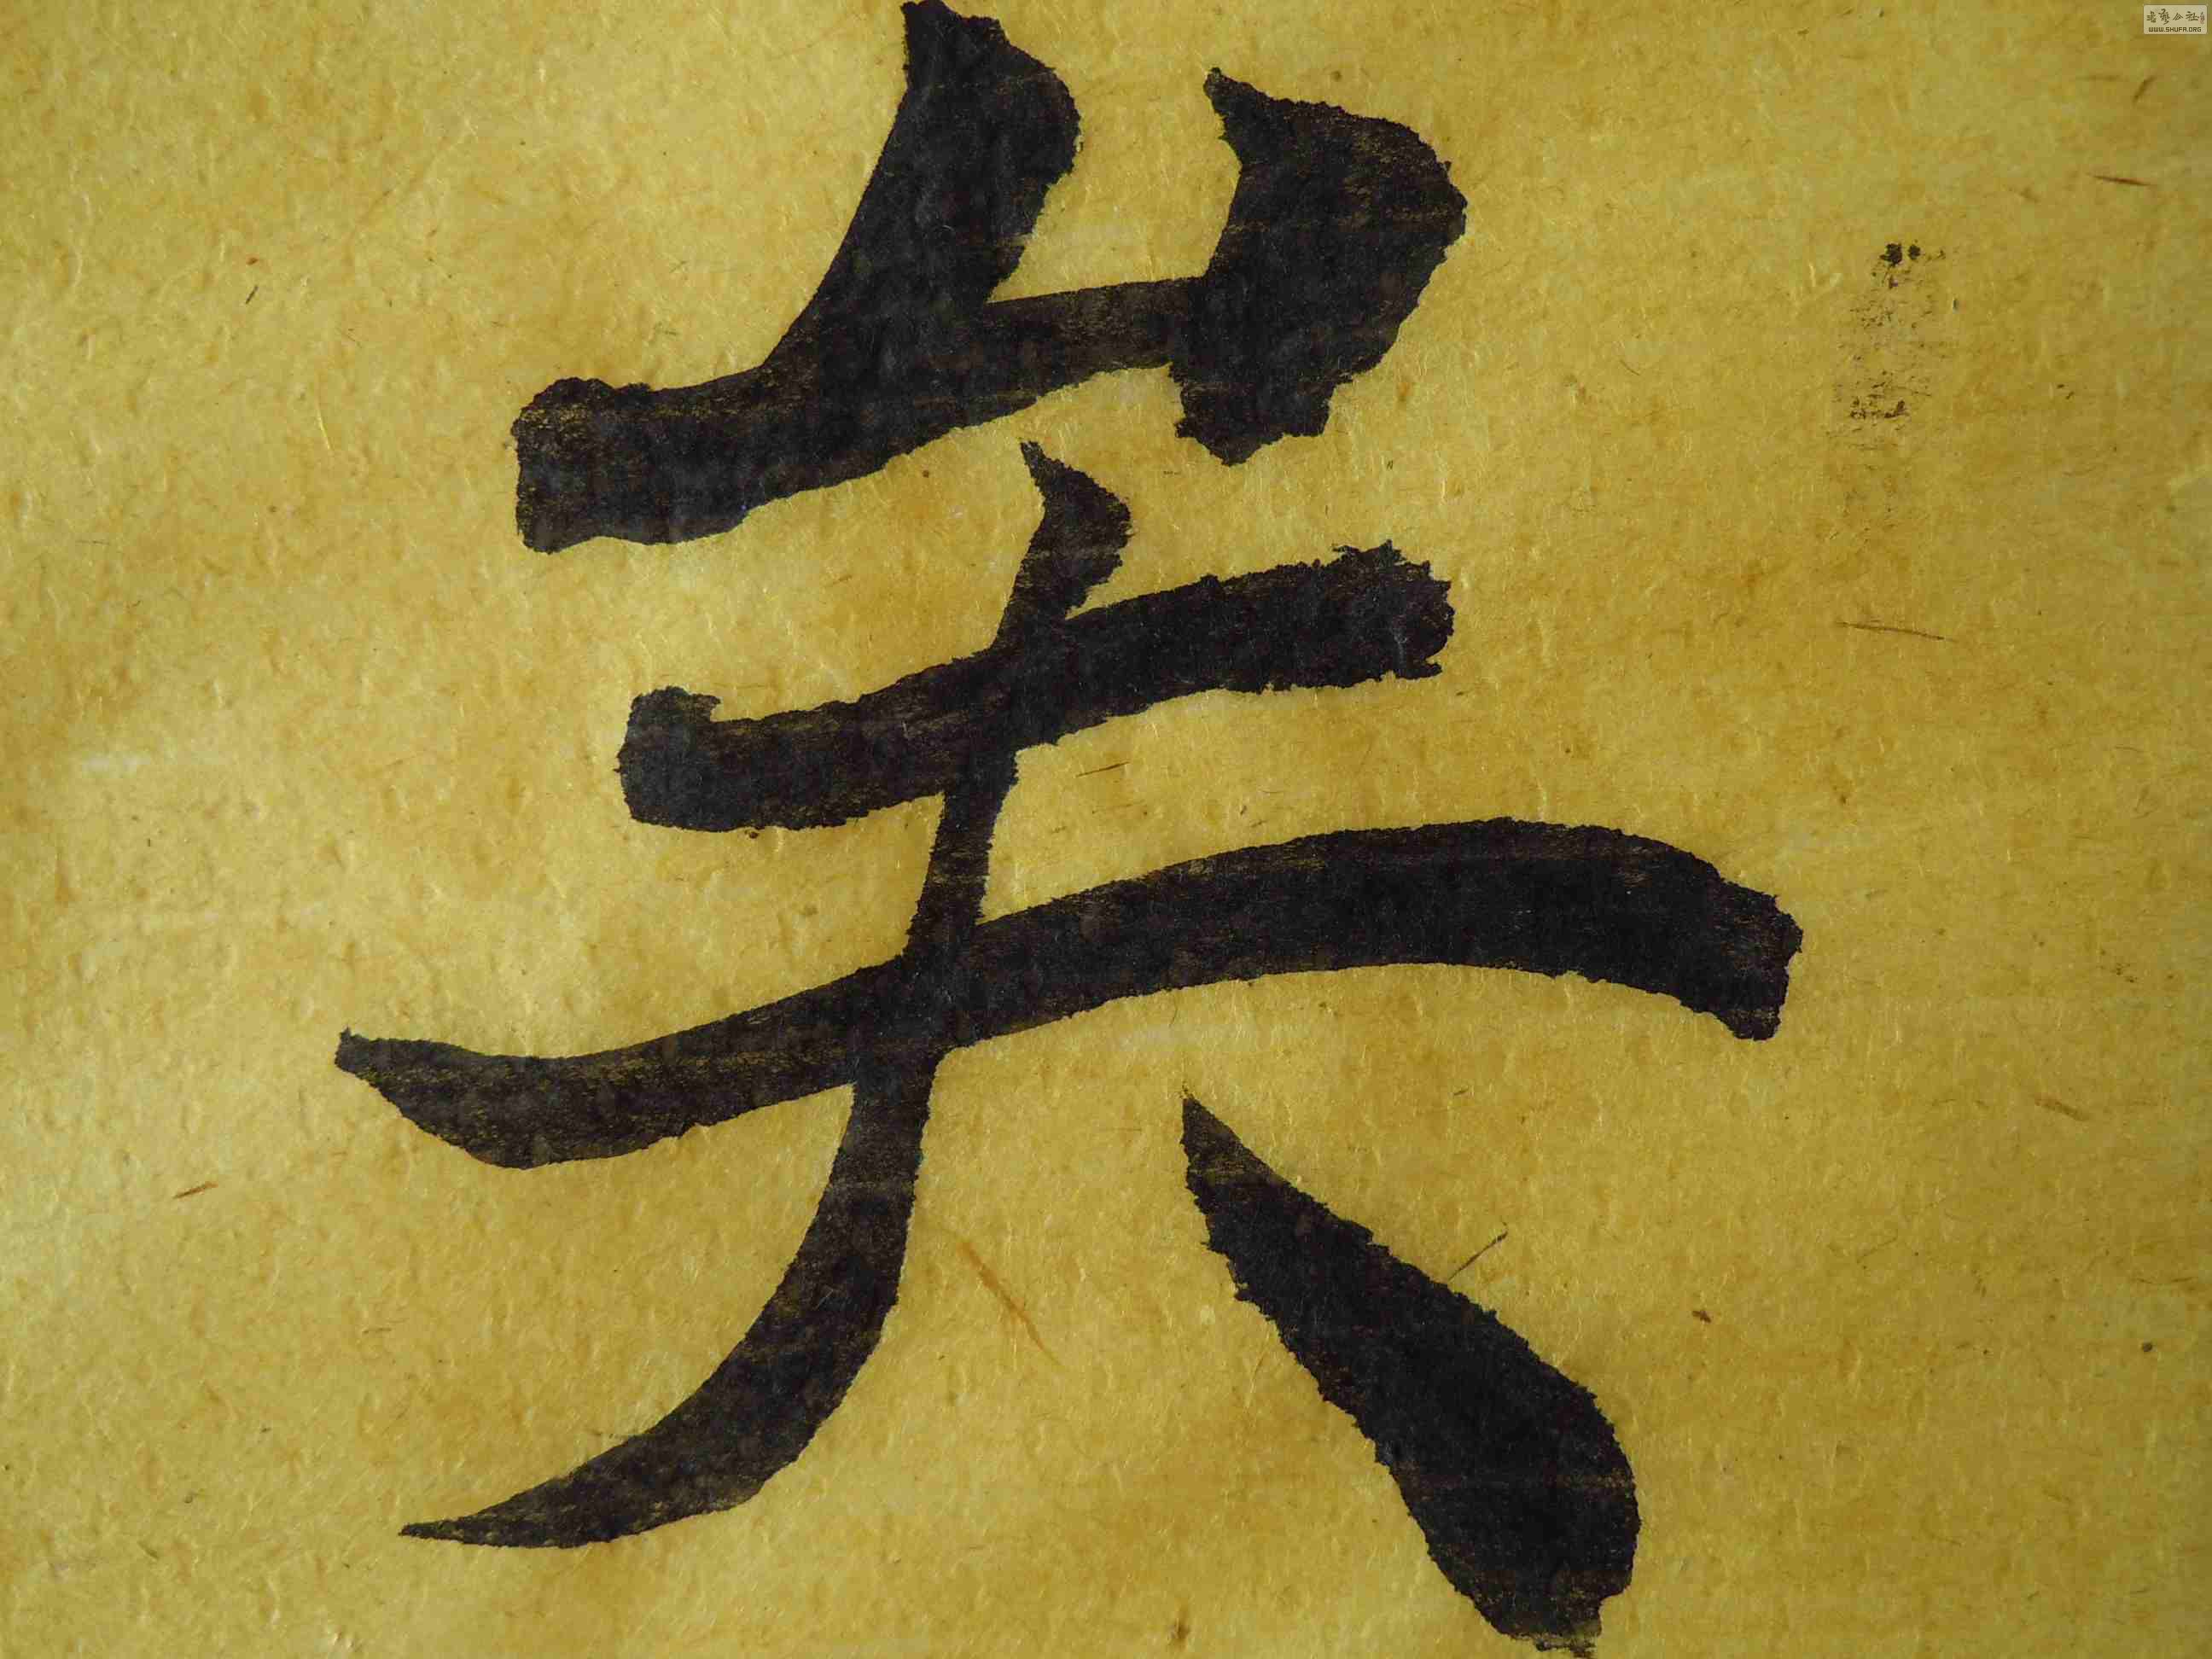 芙
書藝公社
WWW.SHUFA.ORG